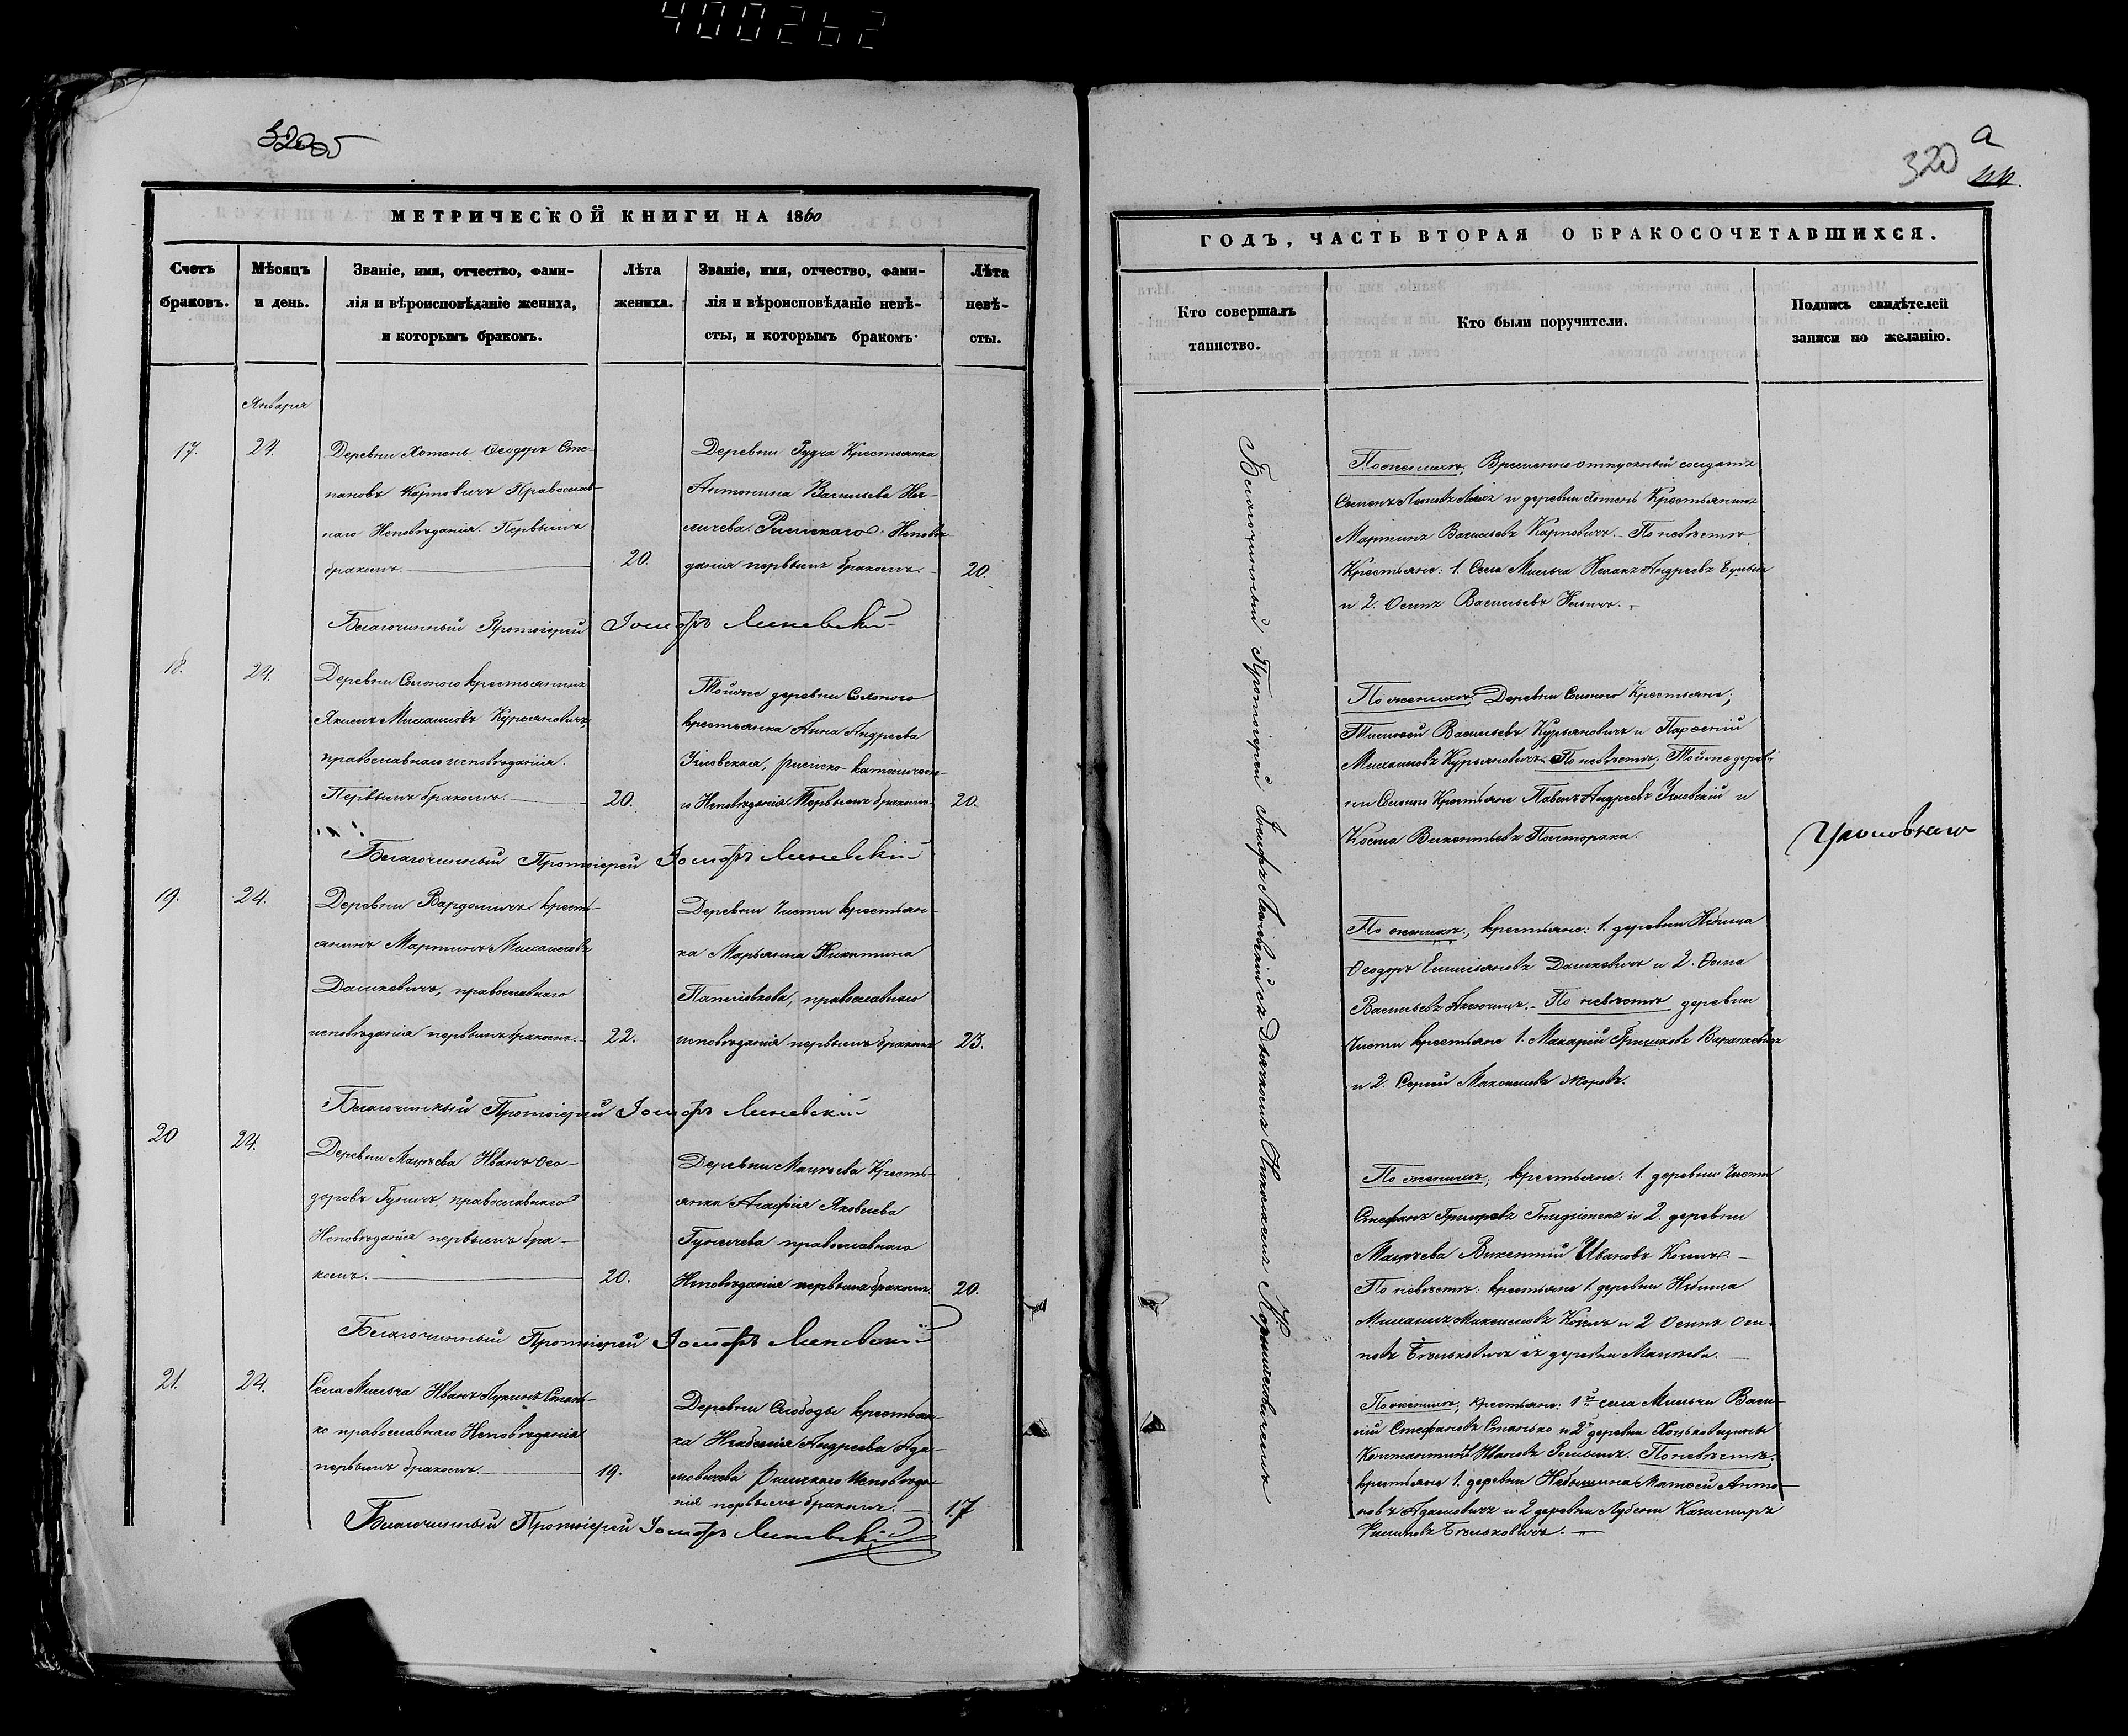 400262
320об
МЕТРИЧЕСКОЙ КНИГИ НА 1860
Счетъ браковъ.
Мѣсяцъ и день.
Званіе, имя, отчество, фами-
лія и вѣроисповѣданіе жениха,
и которымъ бракомъ.
Лѣта
жениха.
Званіе, имя, отчество, фами-
лія и вѣроисповѣданіе невѣ-
сты, и которымъ бракомъ.
Лѣта
невѣ-
сты.
Января
17.
24.
Деревни Хотень Ѳеодоръ Сте-
пановъ Карповичъ Православ-
наго Исповѣданія. Первымъ
бракомъ.
20.
Деревни Гудча Крестьянка
Антонина Васильева
Римскаго Исповѣ-
данія первымъ бракомъ.
20.
Благочинный Протоіерей Іосифъ Линевскій
18.
24.
Деревни Солоного крестьянинъ
Якимъ Михаиловъ Курьяновичъ,
православнаго исповѣданія.
Первымъ бракомъ.
20.
Тойже деревни Солоного
крестьянка Анна Андреева
римско-католическа-
го Исповѣданія Первымъ бракомъ.
20.
Благочинный Протоіерей Іосифъ Линевскій
19.
24.
Деревни Вардомичъ кресть-
янинъ Мартинъ Михаиловъ
Дашкевичъ, православнаго
исповѣданія первымъ бракомъ.
22.
Деревни Чисти крестьян-
ка Марьянна Никитина
православнаго
исповѣданія первымъ бракомъ
23.
Благочинный Протоіерей Іосифъ Линевскій
20
24.
Деревни Мацѣева Иванъ Ѳео-
доровъ Гуничъ, православнаго
Исповѣданія первымъ бра-
комъ.
20.
Деревни Мацѣева Кресть-
янка Агафія Яковлева
Гуничева православнаго
Исповѣданія первымъ бракомъ.
20.
Благочинный Протоіерей Іосифъ Линевскій
21.
24.
Села Мильча Иванъ Лукинъ Стань-
ко православнаго Исповѣданія
первымъ бракомъ.
19.
Деревни Слободы крестьян-
ка Андреева Ада-
мовичева Римскаго Исповѣда-
нія первымъ бракомъ.
17
Благочинный Протоіерей Іосифъ Линевскій
320
а
ГОДЪ, ЧАСТЬ ВТОРАЯ О БРАКОСОЧЕТАВШИХСЯ.
Кто совершалъ
таинство.
Кто были поручители.
Подпись свидѣтелей
записи по желанію.
Благочинный Протоіерей Іосифъ Линевскій съ Дьячкомъ Николаемъ
По женихѣ, Временно отпускный солдатъ
Семенъ и деревни Хотень Крестьянинъ
Мартинъ Васильевъ Карповичъ. По невѣстѣ,
Крестьяне: 1. Села Мильча Андреевъ
и 2. Осипъ Васильевъ
По женихѣ, Деревни Солоного Крестьяне;
Васильевъ Курьяновичъ и Парфеній
Михаиловъ Курьяновичъ. По невѣстѣ, Тойже дерев-
ни Солоного Крестьяне Павелъ Андреевъ и
Косма Викентьевъ Полторака.
По женихѣ, крестьяне: 1. деревни
Ѳеодоръ Емиліановъ Дашкевичъ и 2. Ѳома
Васильевъ По невѣстѣ деревни
Чисти крестьяне 1. Макарій
и 2. Сергій
По женихѣ, крестьяне: 1. деревни Чисти
Стефанъ и 2. деревни
Мацѣева Викентій Ивановъ
По невѣстѣ: крестьяне 1. деревни
Михаилъ и 2 Осипъ Оси-
повъ изъ деревни Мацѣева.
По женихѣ, крестьяне: 1й села Мильчи Васи-
лій Стефановъ Станько и 2й деревни
Константинъ Ивановъ По невѣстѣ.
крестьяне 1. деревни Матвей Анто-
новъ Адамовичъ и 2 деревни Казимиръ